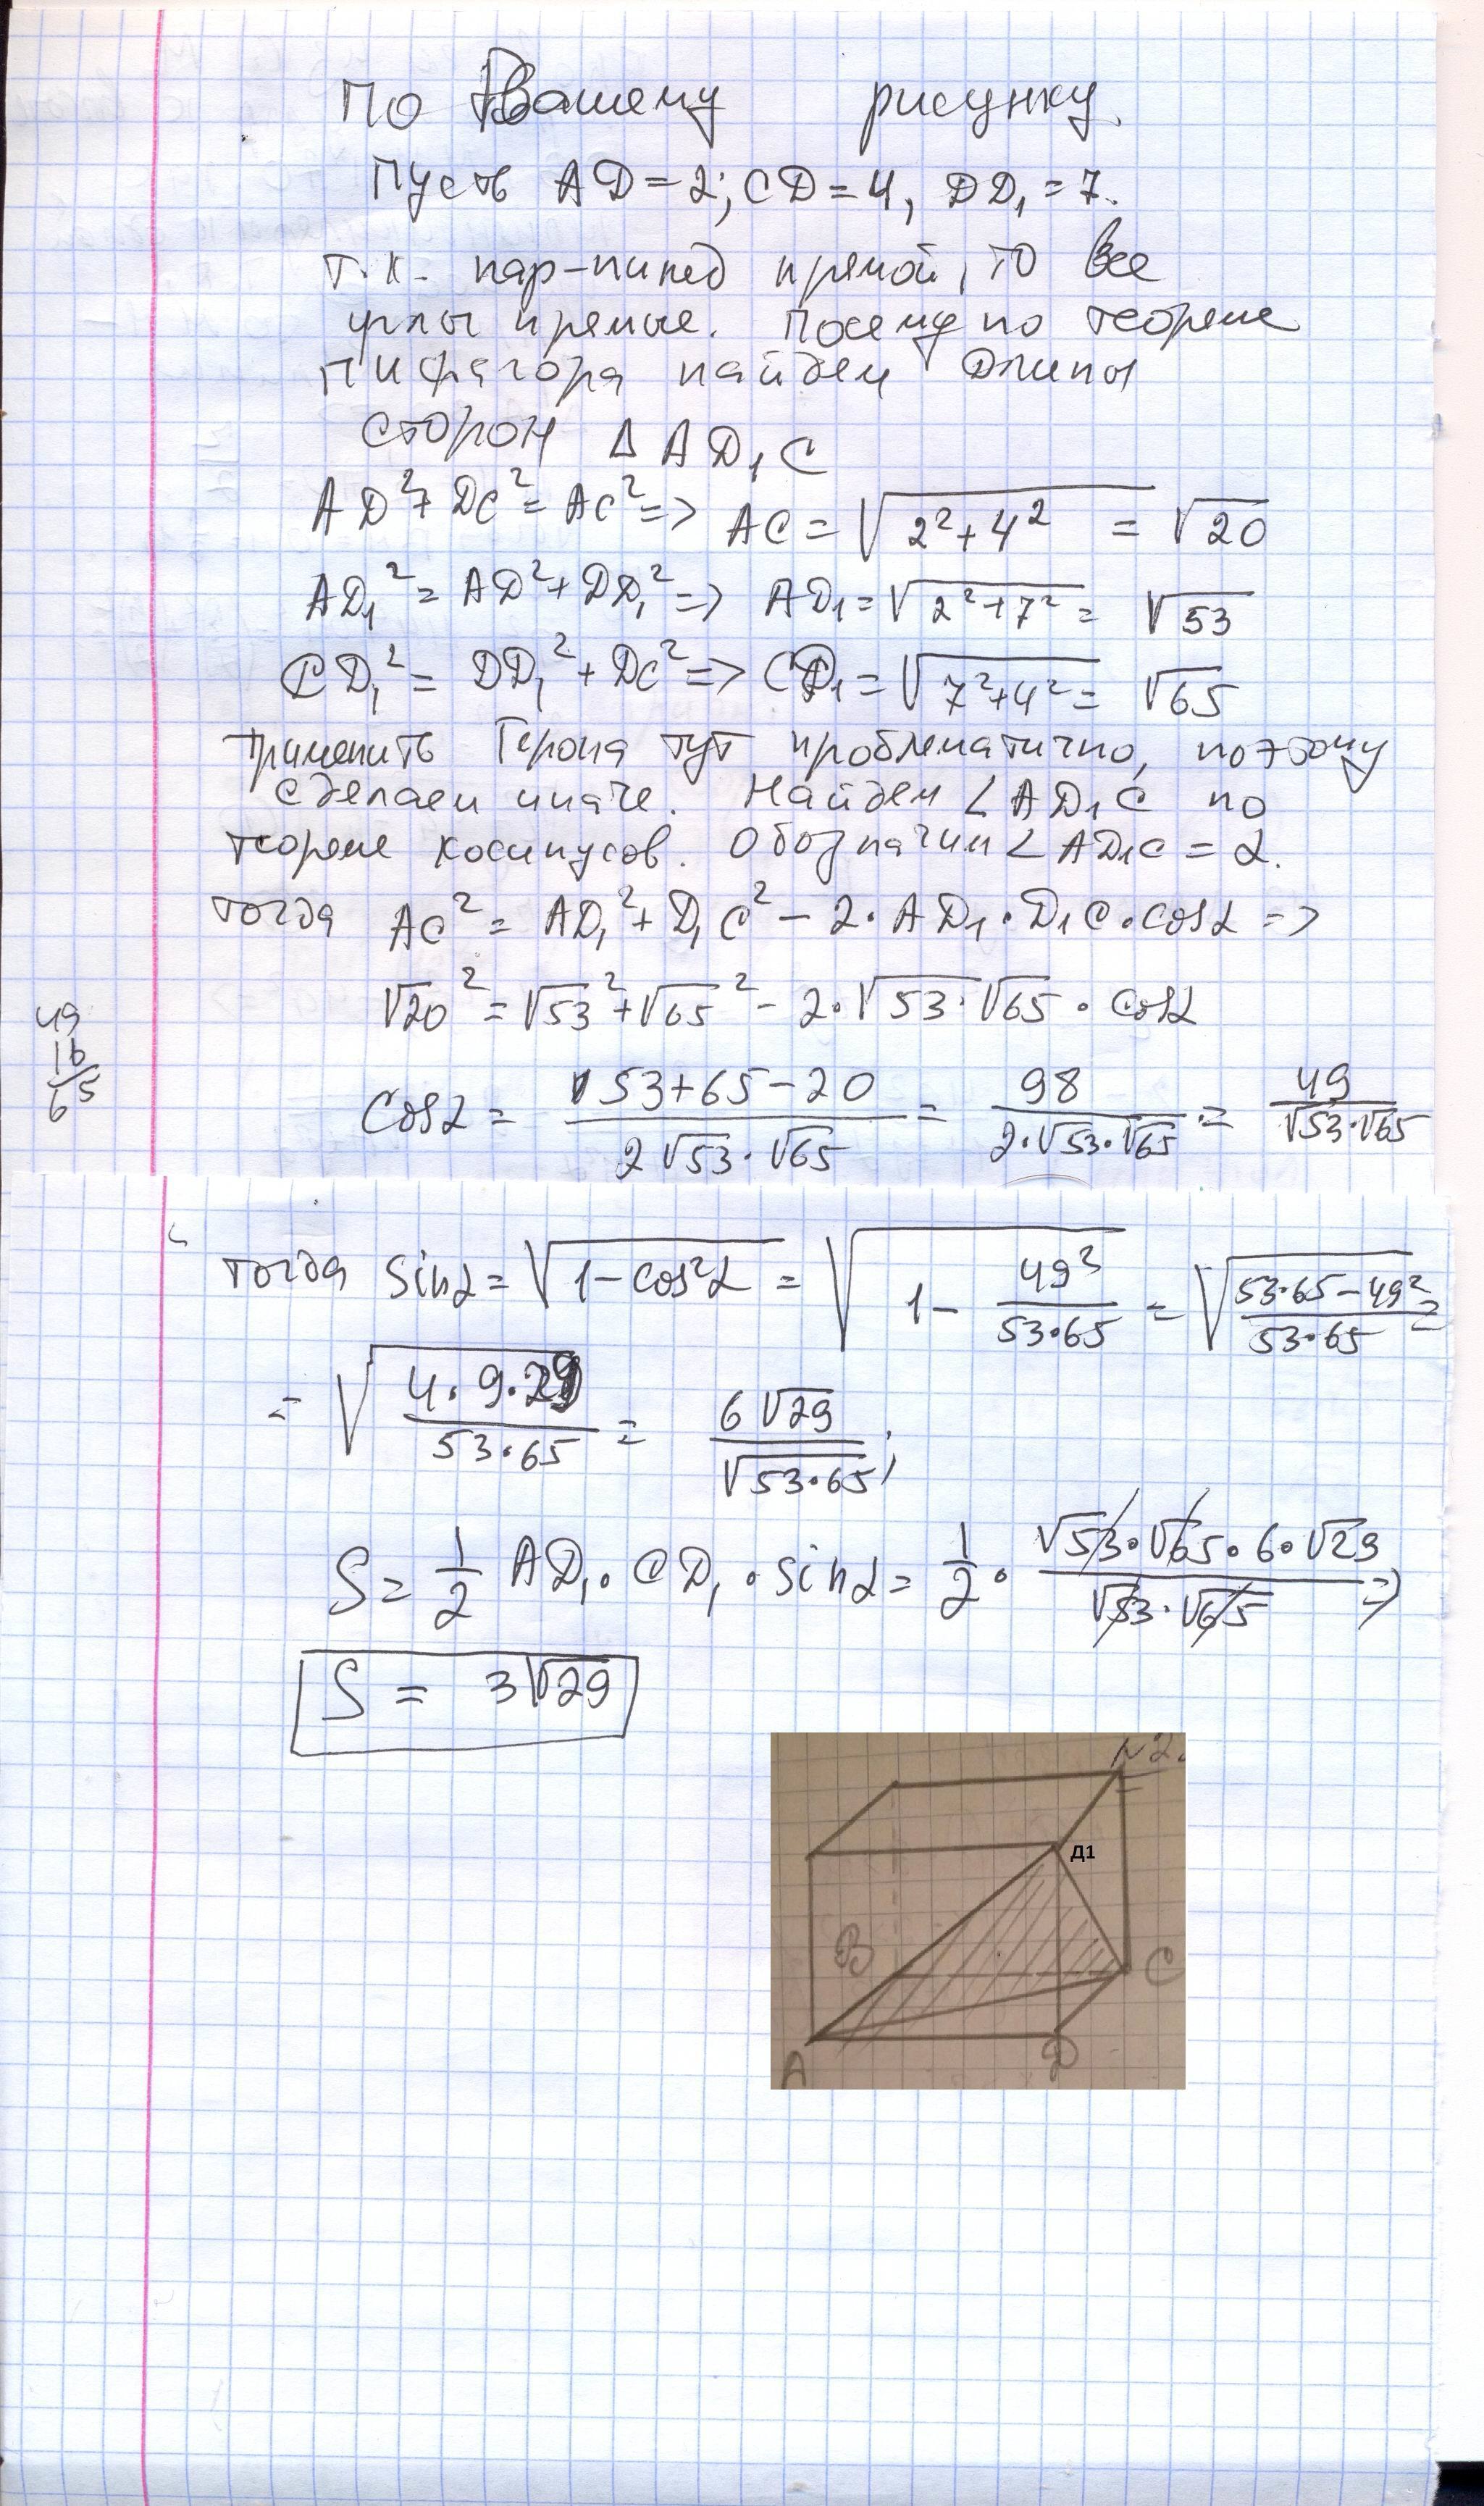 По Вашему рисунку.
Пусть AD=2; CD=4, DD₁=7.
т.к. пар-пипед прямой, то все
углы прямые. Посему по теореме
Пифагора найдем длины
сторон Δ AD₁C
AD²+DC²=AC² => AC=√(2²+4²) = √20
AD₁²=AD²+DD₁² => AD₁=√(2²+7²) = √53
CD₁²= DD₁²+DC² => CD₁=√(7²+4²) = √65
Применить Герона тут проблематично, поэтому
сделаем иначе. Найдем ∠AD₁C по
теореме косинусов. Обозначим ∠AD₁C = α.
тогда AC² = AD₁²+D₁C² − 2·AD₁·D₁C·cosα =>
√20² = √53²+√65² − 2·√53·√65·cosα
49
16
65
cosα = (53+65−20)/(2√53·√65) = 98/(2·√53·√65) = 49/(√53·√65)
тогда sinα=√(1−cos²α) = √(1−49²/(53·65)) = √((53·65−49²)/(53·65)) =
= √(4·9·29/(53·65)) = 6√29/√(53·65);
S= 1/2 AD₁·CD₁·sinα= 1/2 · (√53·√65·6·√29)/(√53·√65) =>
S = 3√29
N2.
Д1
B
C
A
D